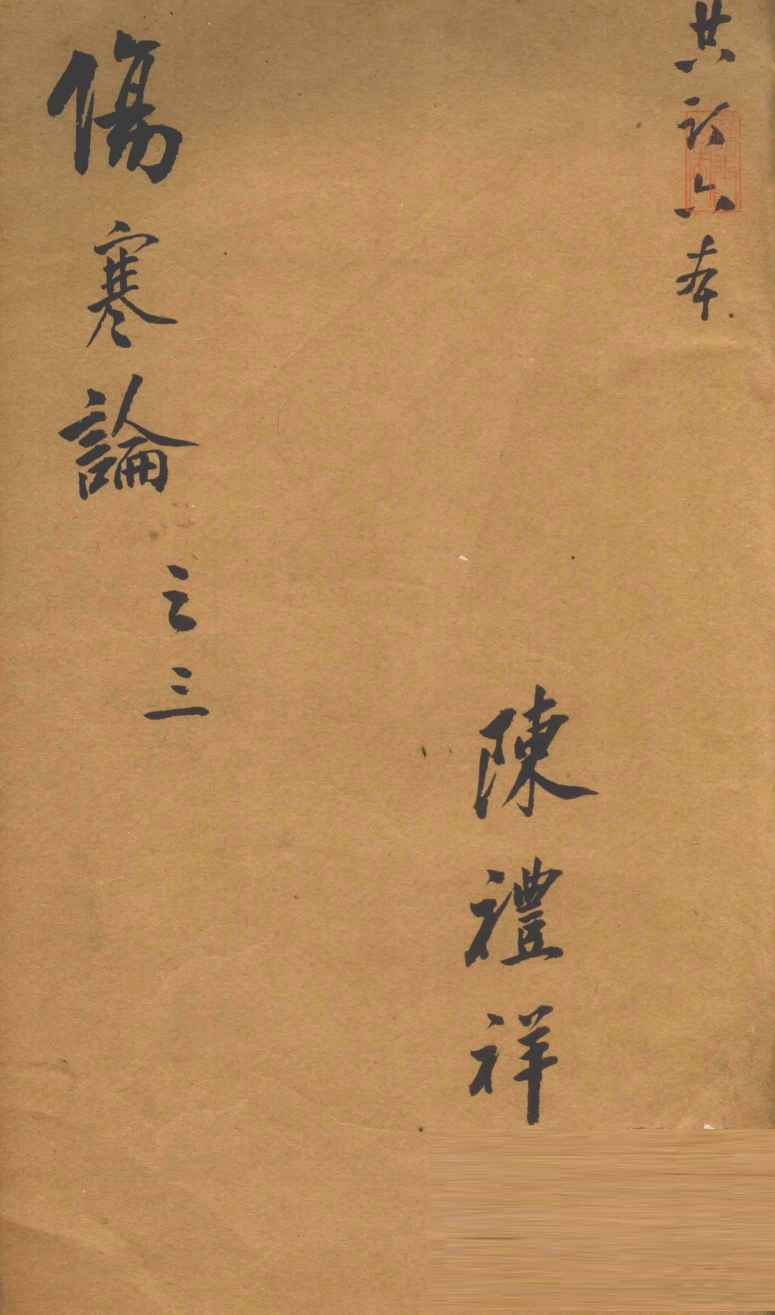 共訂六本
陳禮祥
傷寒論之三